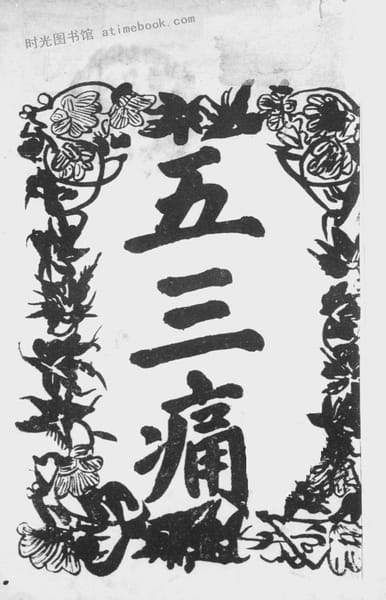 时光图书馆 atimebook.com
五
三
痛